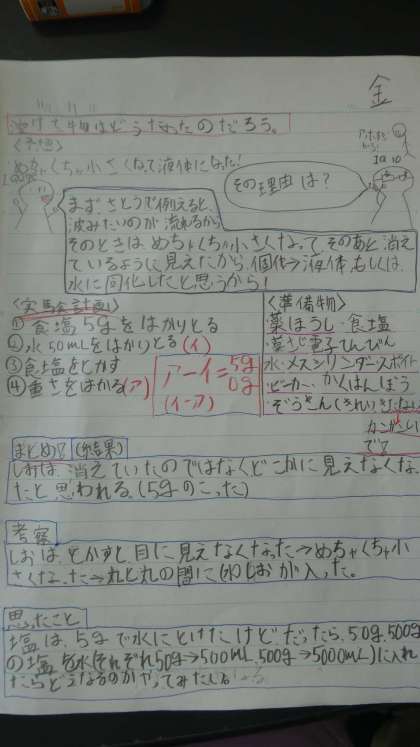 金
溶けて物はどうなったのだろう。
<予想>
めちゃくちゃ小さくなって液体になった!
その理由は?
まず、さとうで例えると、
波みたいのが流れるから
そのときは、めちゃくちゃ小さくなって、そのあと消え
ているように見えたから、個体→液体、もしくは、
水に同化したと思うから!
<実験計画>
①食塩5gをはかりとる
②水50mLをはかりとる(イ)
③食塩をとかす
④重さをはかる(ア)
ア-イ=5g
0g
(イ-ア)
<準備物>
薬ほうし・食塩
・薬さじ・電子てんびん
水・メスシリンダー・スポイト
・ビーカー・かくはんぼう
・ぞうきん(きれい)きたない
まとめ?(結果)
しおは、消えていたのではなくどこかに見えなくなっ
たと思われる。(5gのこった)
考察
しおは、とかすと目に見えなくなった→めちゃくちゃ小
さくなった→丸と丸の間に(水)しおが入った。
思ったこと
塩は、5gで水にとけたけどだったら、50g、500g
の塩を水(それぞれ50g→500mL、500g→5000mL)に入れ
たらどうなるのかやってみたい。